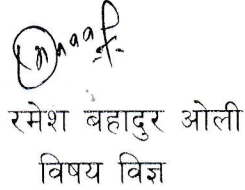 रमेश बहादुर ओली
विषय विज्ञ